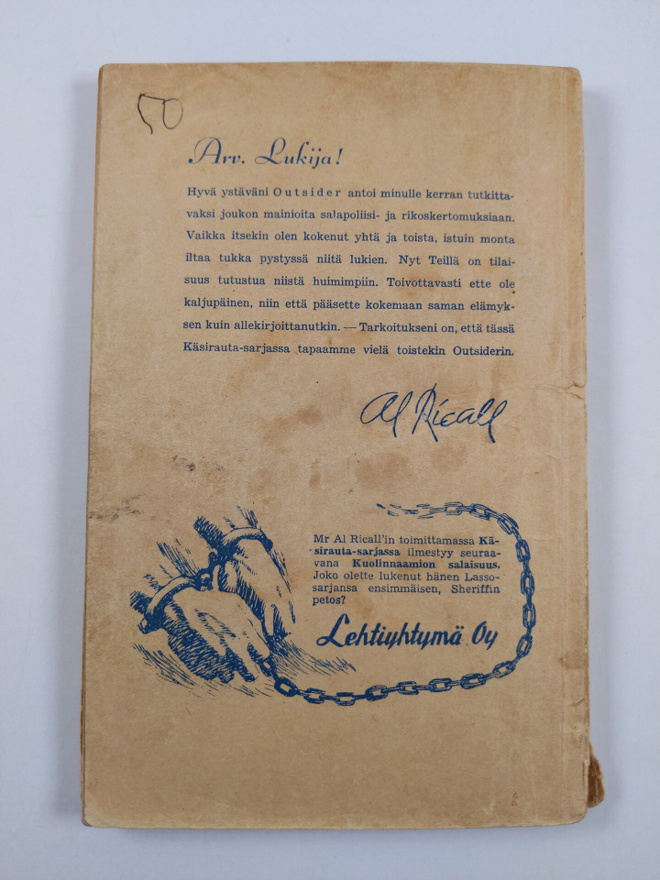 50
Arv. Lukija!
Hyvä ystäväni Outsider antoi minulle kerran tutkitta-
vaksi joukon mainioita salapoliisi- ja rikoskertomuksiaan.
Vaikka itsekin olen kokenut yhtä ja toista, istuin monta
iltaa tukka pystyssä niitä lukien. Nyt Teillä on tilai-
suus tutustua niistä huimimpiin. Toivottavasti ette ole
kaljupäinen, niin että pääsette kokemaan saman elämyk-
sen kuin allekirjoittanutkin. — Tarkoitukseni on, että tässä
Käsirauta-sarjassa tapaamme vielä toistekin Outsiderin.
Al Ricall
Mr Al Ricall'in toimittamassa Kä-
sirauta-sarjassa ilmestyy seuraa-
vana Kuolinnaamion salaisuus.
Joko olette lukenut hänen Lasso-
sarjansa ensimmäisen, Sheriffin
petos?
Lehtiyhtymä Oy